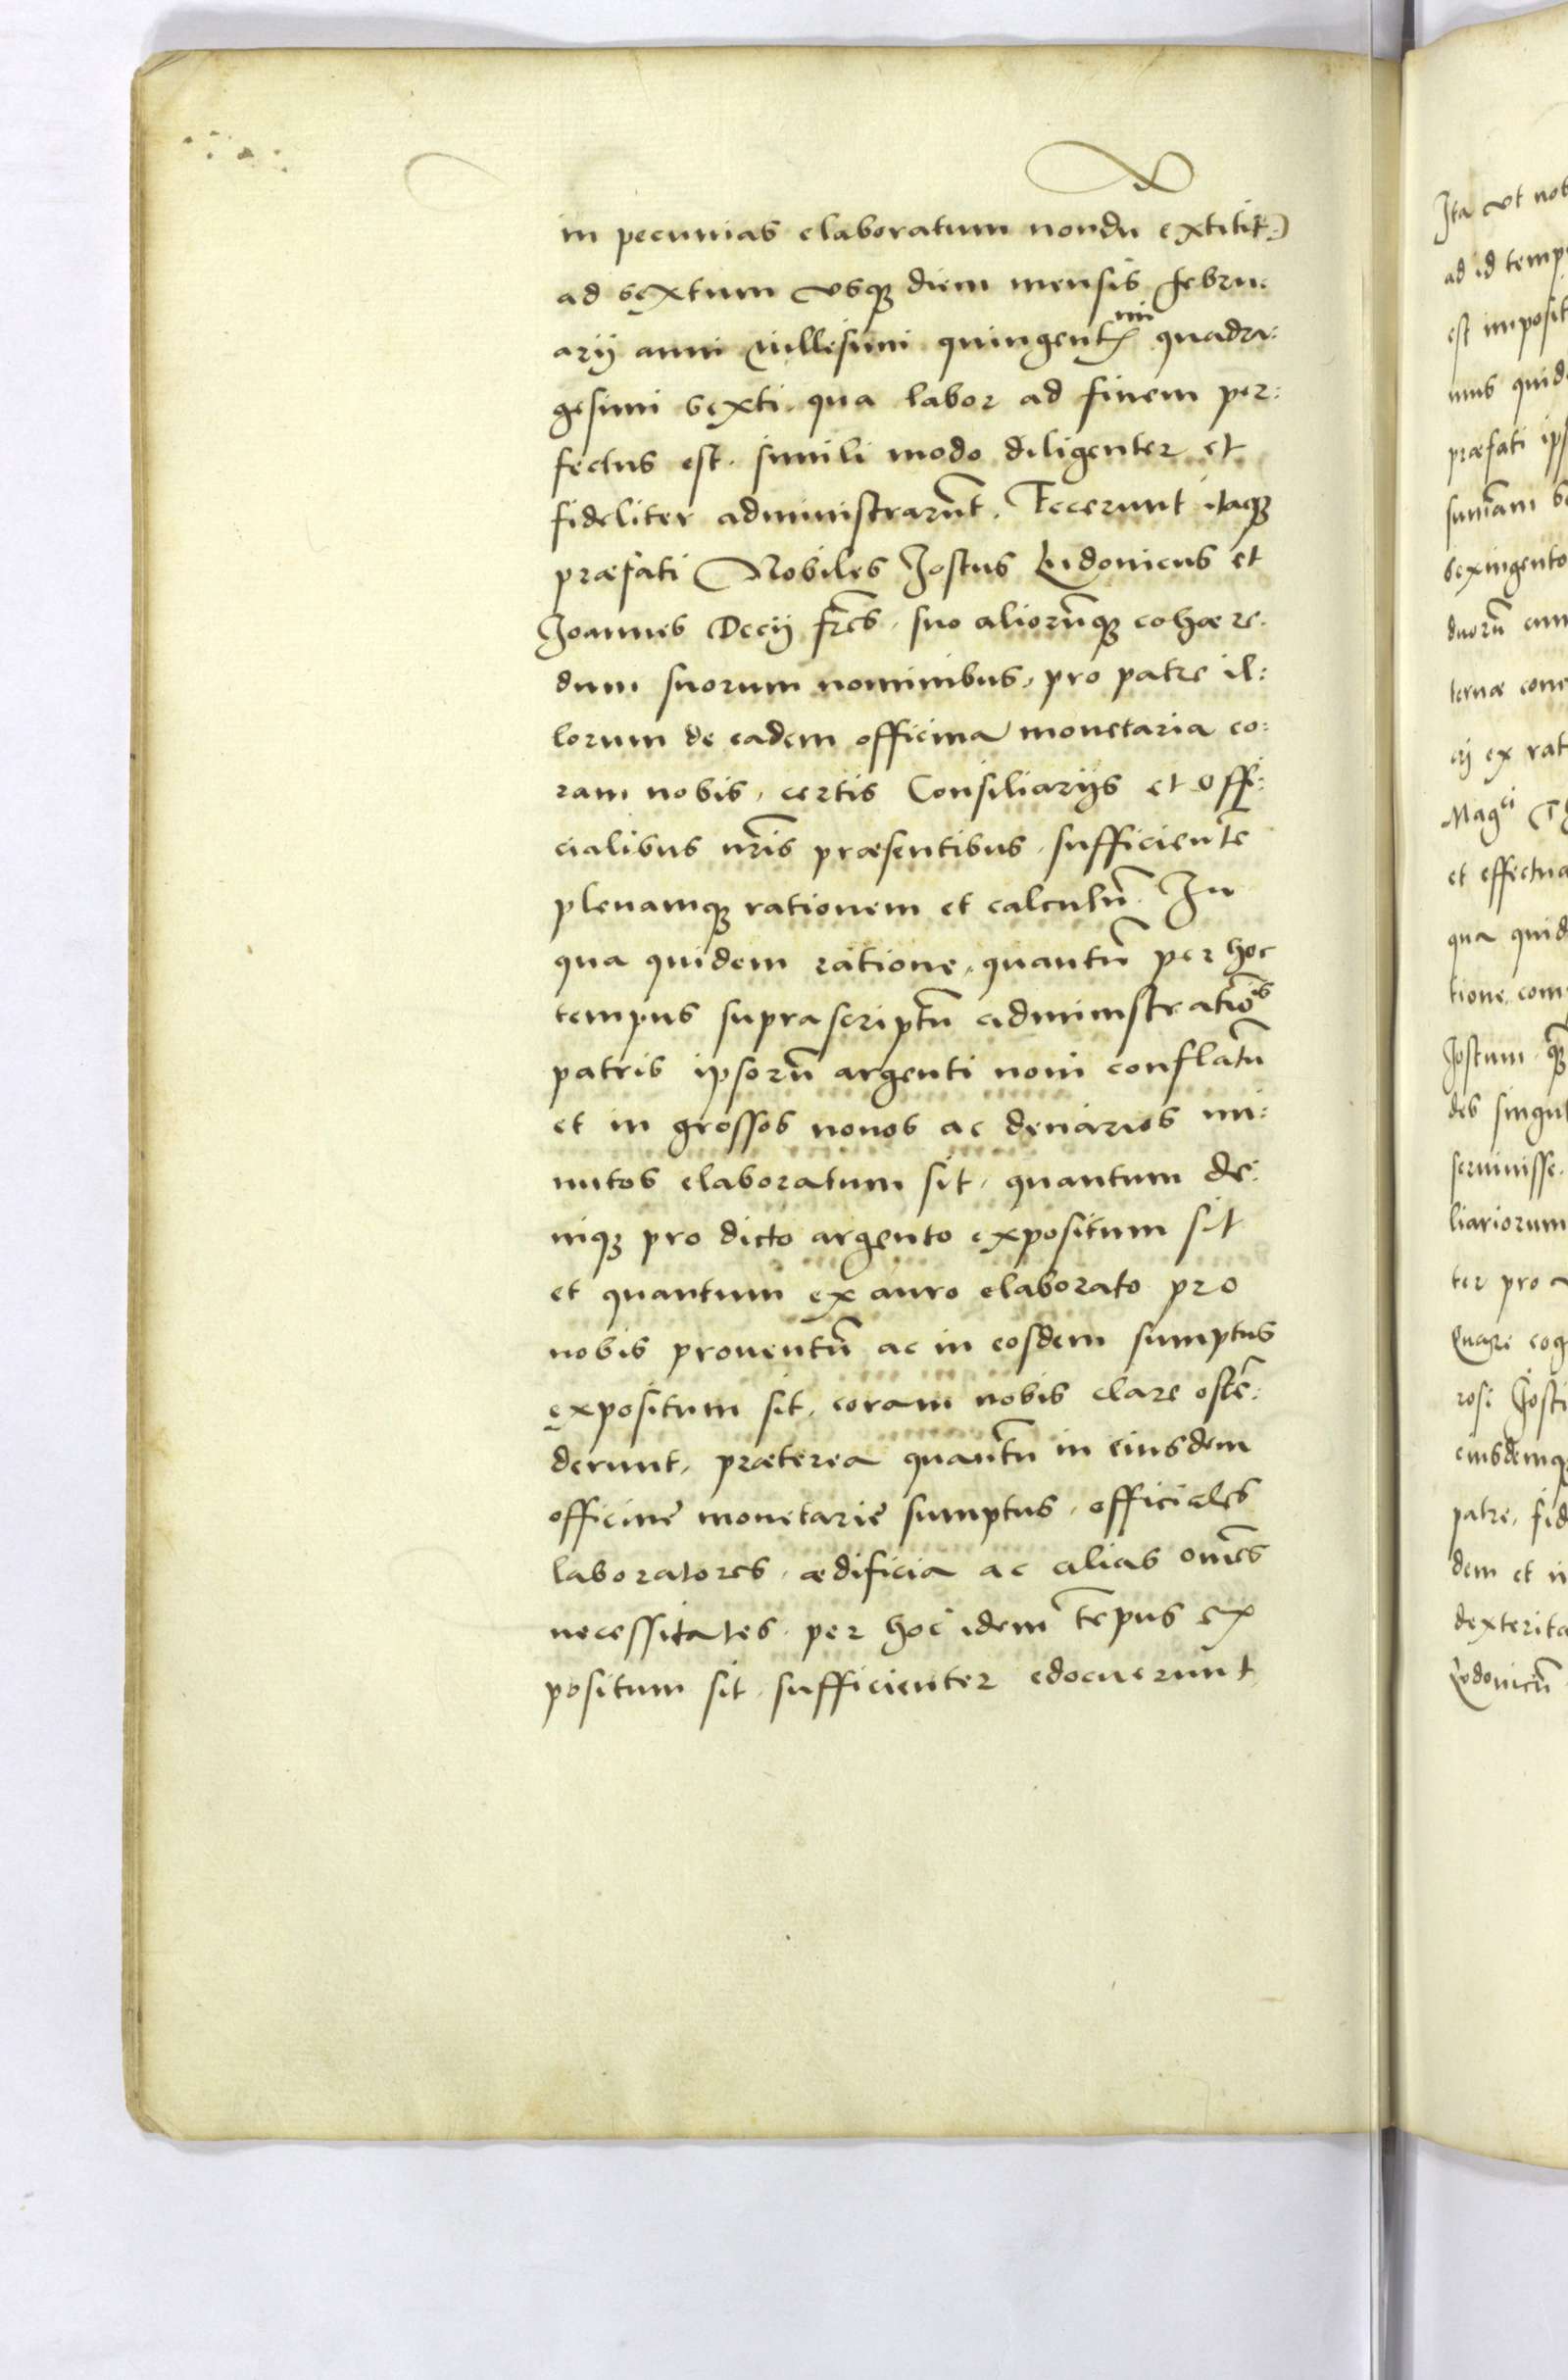 in pecunias elaboratum nondū extitit)
ad sextum vsqꝫ diem mensis febru:
arij anni Millesimi quingentesimi quadra:
gesimi sexti, qua labor ad finem per:
fectus est, simili modo diligenter et
fideliter administrarūt. Fecerunt itaqꝫ
præfati Nobiles Jostus Ludouicus et
Joannes Decij fr̃es, suo aliorūqꝫ cohære:
dum suorum nominibus, pro patre il:
lorum de eadem officina monetaria co:
ram nobis, certis Consiliarijs et offi:
cialibus nr̃is præsentibus, sufficientē
plenamqꝫ rationem et calculū. In
qua quidem ratione, quantū per hoc
tempus suprascriptū administratiōis
patris ipsorū argenti noui conflatū
et in grossos nouos ac denarios mi:
nutos elaboratum sit, quantum de:
niqꝫ pro dicto argento expositum sit
et quantum ex auro elaborato pro
nobis prouentū ac in eosdem sumptus
expositum sit, coram nobis clare ostē:
derunt, præterea quantū in eiusdem
officinę monetarię sumptus, officiales
laboratores, ædificia ac alias om̄es
necessitates, per hoc idem tēpus ex
positum sit, sufficienter edocuerunt
Ita vt
ad id
est
præfati
sum̄am
sexingento
duorū
ternæ
ex
Magci
et
qua
tione
Jostum
des
seruiuisse.
liariorum
ter pro
Quare
rosi Josti
eiusdemqꝫ
patre,
dem et
Ludouicū